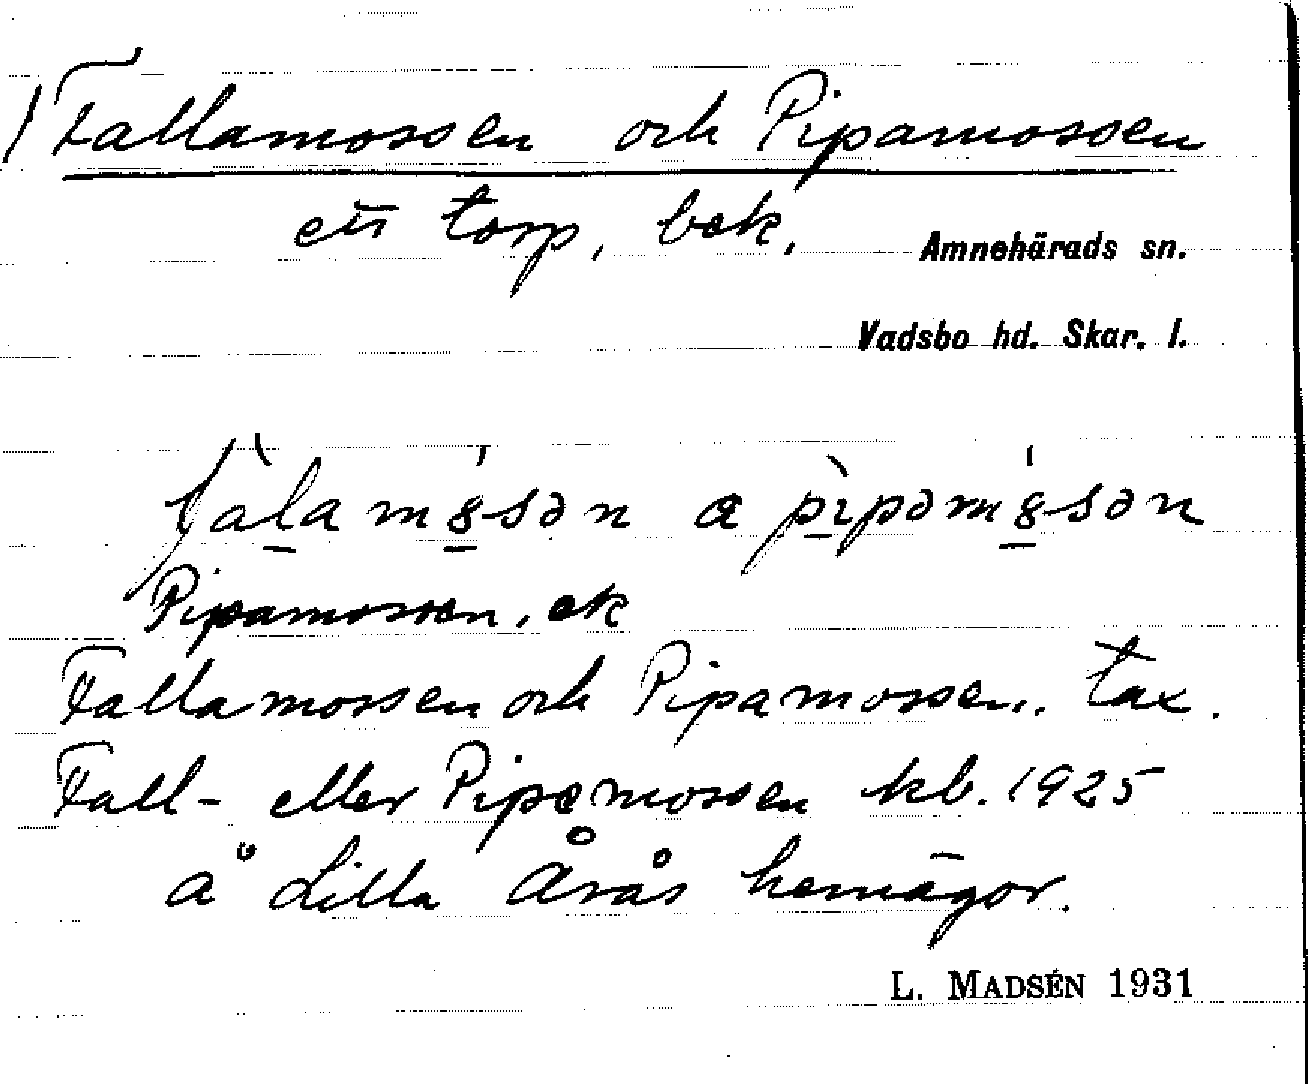 Fallamossen och Pipamossen
ett torp, bek.
Amnehärads sn.
Vadsbo hd. Skar. l.
fàlamósən a pìpəmósən
Pipamossen, ek
Fallamossen och Pipamossen. tax.
Fall- eller Pipamossen kb. 1925
å Lilla Årås hemägor.
L. MADSÉN 1931